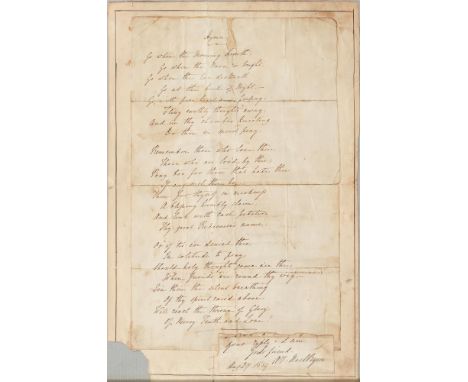 Hymn
Go when the morning shineth,
Go when the Moon is bright,
Go when the Eve declineth
Go at the hush of Night;
Go with pure
Fling earthly thoughts away
And in thy chamber kneeling
Do thou in secret pray.
Remember those who love thee
Those who are loved by thee
Pray too for those that hate thee
If any such there be
Then for thyself in
A blessing humbly claim
And link with each petition
Thy great Redeemer's name.
Or if tis e'er denied thee
In solitude to pray
Should holy thoughts come o'er thee
When friends are round thy way
Een then the silent breathing
Of thy spirit raised above
Will reach the throne of Glory
Of Mercy Truth and Love
Yours
Your friend